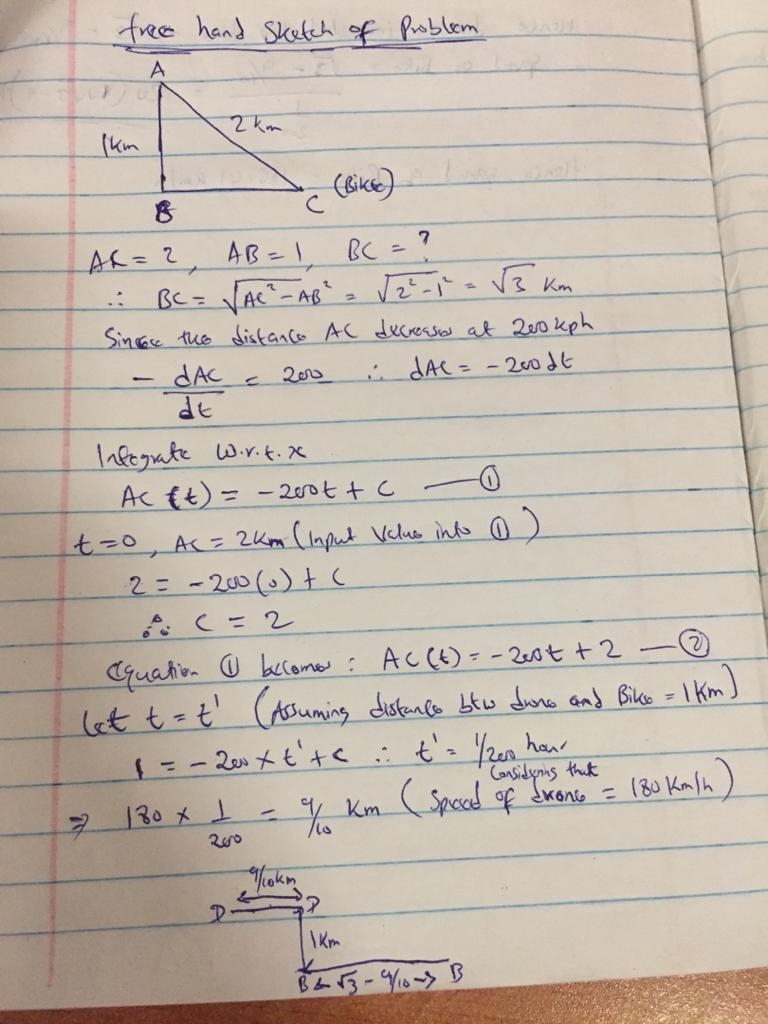 free hand Sketch of Problem
A
1km
2 km
B
C
(Bike)
AC = 2, AB = 1, BC = ?
∴ BC = √AC² - AB² = √2² - 1² = √3 Km
Since the distance AC decreases at 200kph
- dAC/dt = 200 ∴ dAC = -200dt
Integrate w.r.t. x
AC (t) = -200t + C — ①
t=0, AC = 2Km (Input Value into ①)
2 = -200(0) + C
∴ C = 2
Equation ① becomes: AC(t) = -200t + 2 — ②
let t = t' (Assuming distance btw drone and Bike = 1Km)
1 = -200 x t' + C ∴ t' = 1/200 hour
Considering that
⇒ 180 x 1/200 = 9/10 Km (Speed of drone = 180 Km/h)
9/10 km
D
D
1km
B ← √3 - 9/10 → B